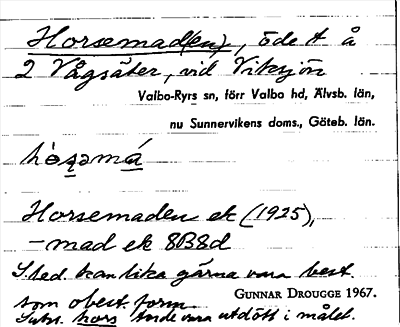 Horsemad(en), öde t å
2 Vågsäter, vid Viksjön
Valbo-Ryrs sn, förr Valbo hd, Älvsb. län,
nu Sunnervikens doms., Göteb. län.
Horsemaden ek (1925),
-mad ek 8B8d
S led. kan lika gärna vara best.
som obest. form
GUNNAR DROUGGE 1967.
Subst. hors torde vara utdött i målet.